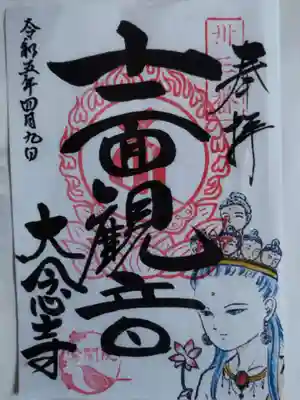 奉拝
十一面観音
大念寺
令和五年四月九日